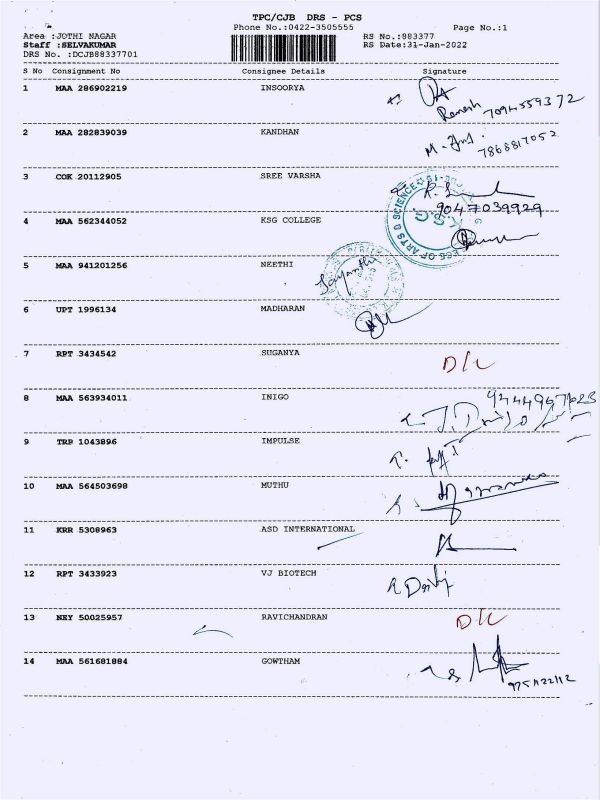 TPC/CJB DRS - PCS
Phone No.:0422-3505555 Page No.:1
Area :JOTHI NAGAR RS No.:883377
Staff :SELVAKUMAR RS Date:31-Jan-2022
DRS No. :DCJB88337701
S No Consignment No Consignee Details Signature
1 MAA 286902219 INSOORYA
Ramesh 7094559372
2 MAA 282839039 KANDHAN
7868817052
3 COK 20112905 SREE VARSHA
9047039929
4 MAA 562344052 KSG COLLEGE
5 MAA 941201256 NEETHI
6 UPT 1996134 MADHARAN
7 RPT 3434542 SUGANYA D/L
8 MAA 563934011 INIGO
9 TRP 1043896 IMPULSE
10 MAA 564503698 MUTHU
11 KRR 5308963 ASD INTERNATIONAL
12 RPT 3433923 VJ BIOTECH
13 NEY 50025957 RAVICHANDRAN D/L
14 MAA 561681884 GOWTHAM